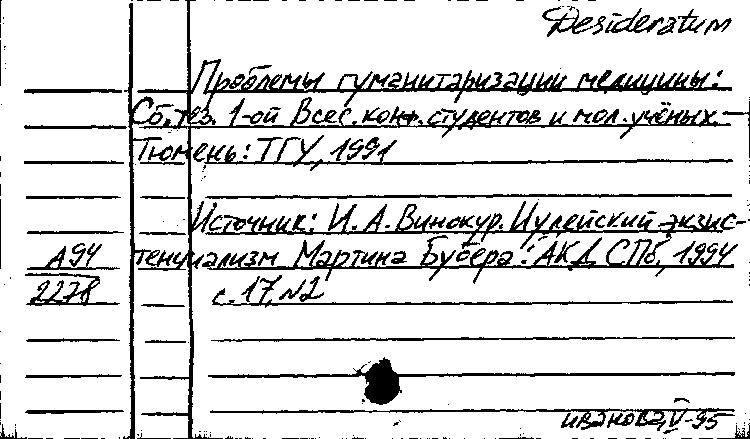 Desideratum
Проблемы гуманитаризации медицины:
Сб. тез. 1-ой Всес. конф. студентов и мол. учёных. –
Тюмень: ТГУ, 1991
Источник: И. А. Винокур. Иудейский экзис-
А94 тенциализм Мартина Бубера: АКД, СПб, 1994
2278 с. 17, №2
иванова, V-95